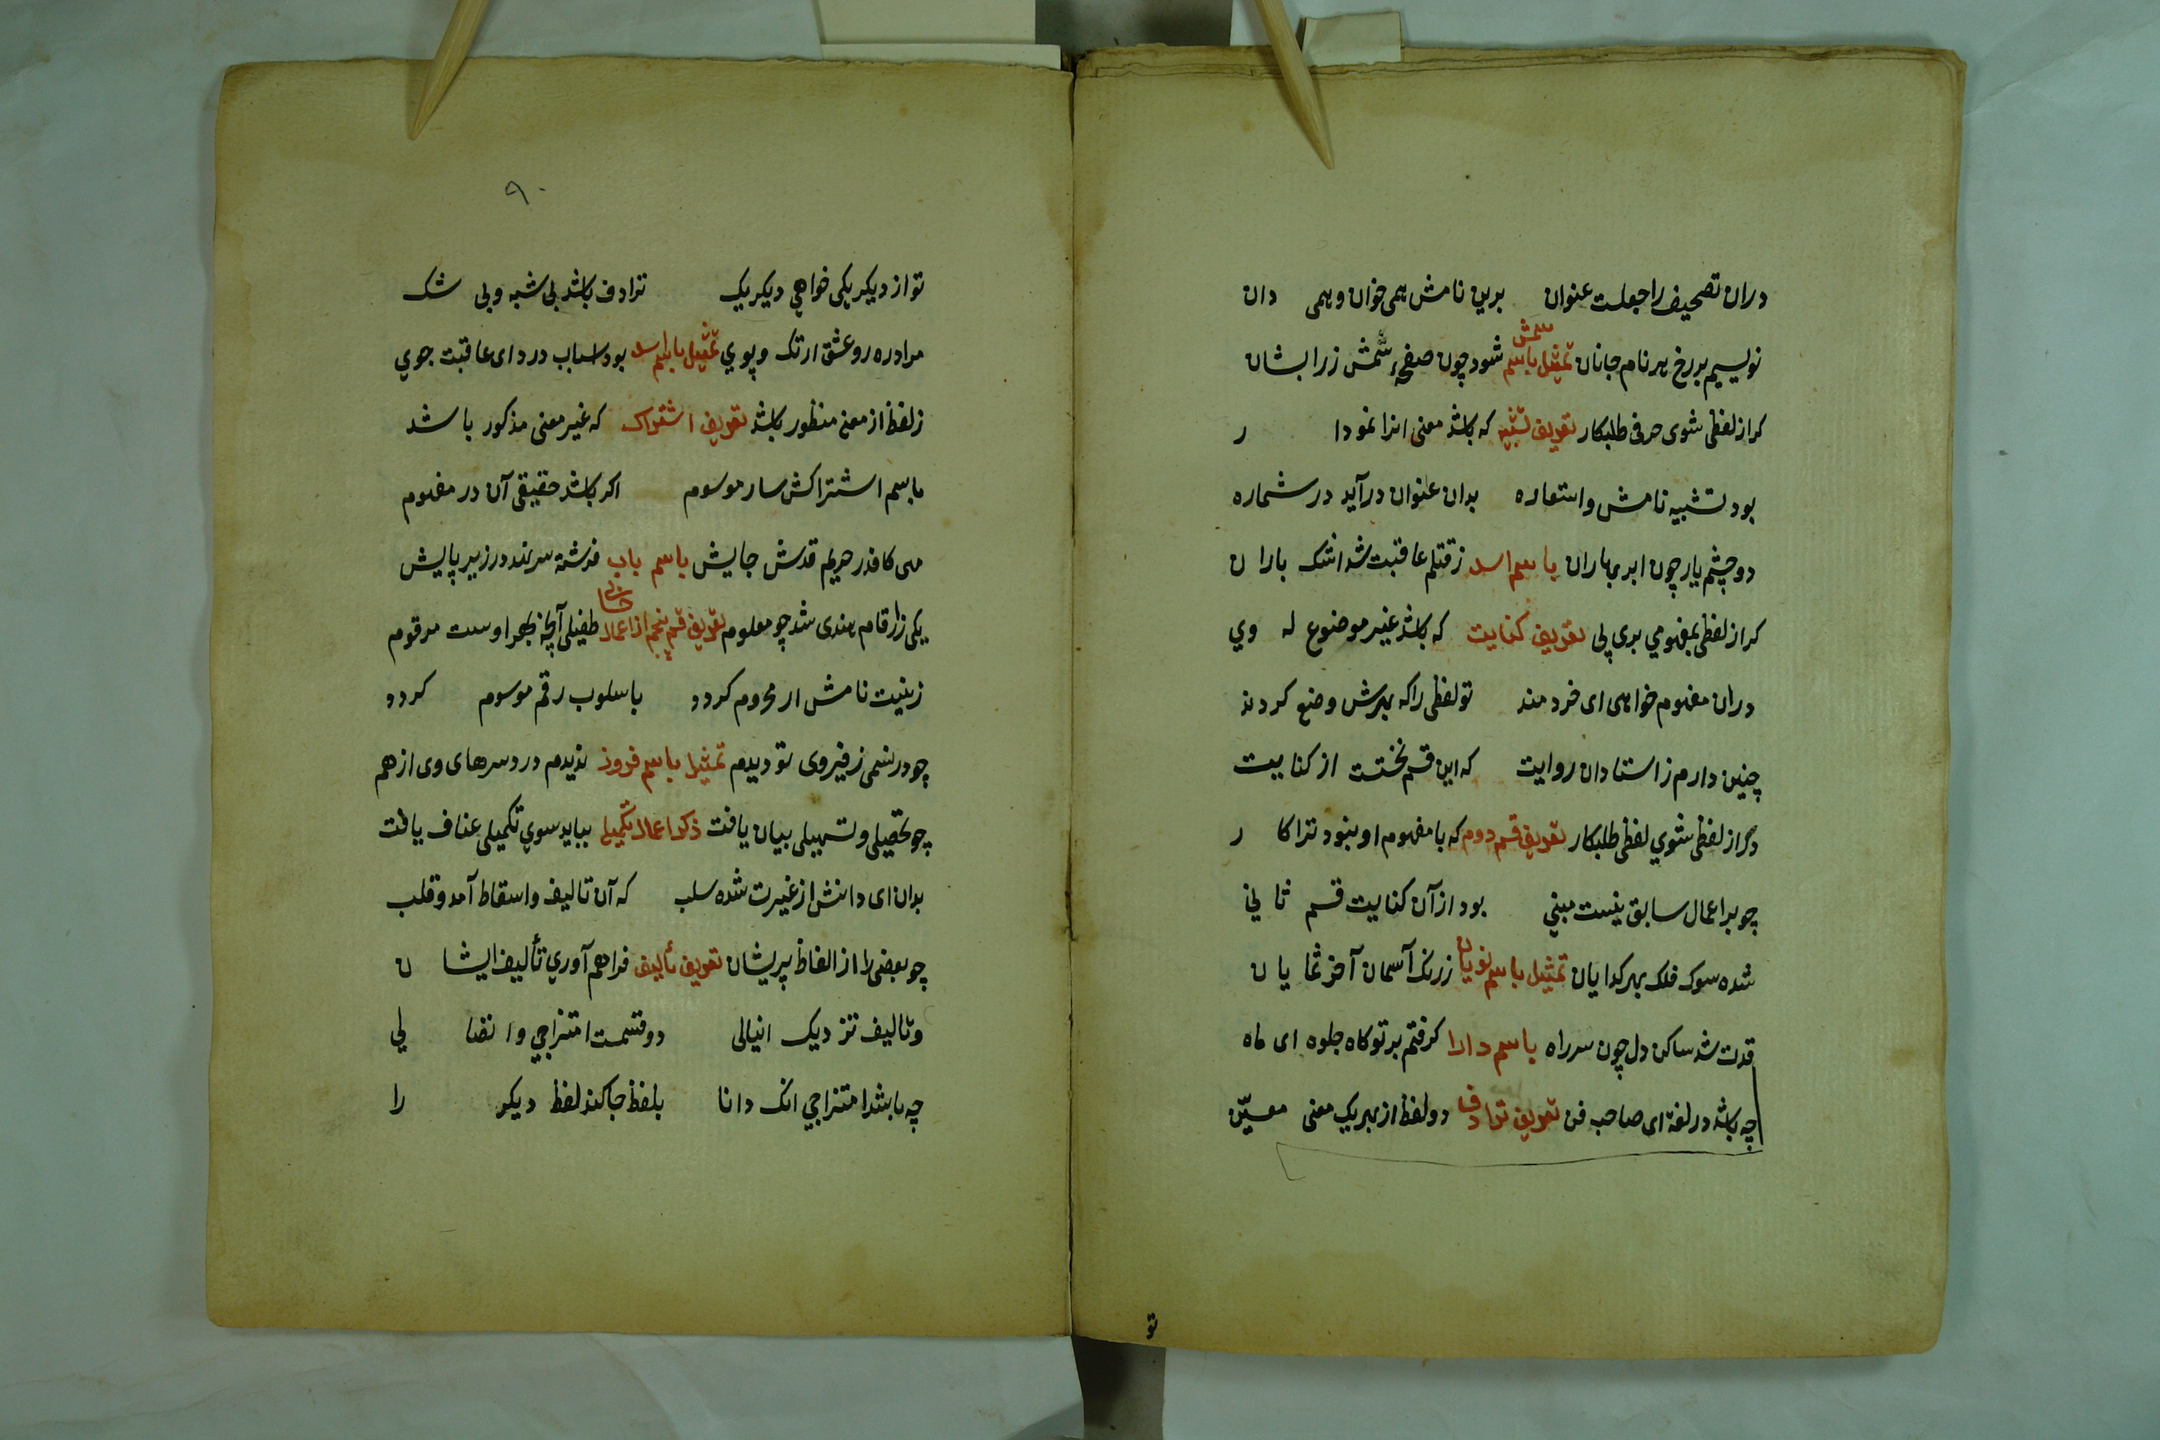 دران تصحیف را جعلست عنوان برین نامش همی خوان و همی دان
نویسیم بر رخ بهر نام جانان تمثیل باسم شمس شود چون صفحهٔ شمش زر ابشان
کر از لفظی شوی حرفی طلبکار تعریف تشبیه که باشد معنی انرا نمودار
بود تشبیه نامش و استعاره بدان عنوان درآید در شماره
دو چشم یار چون ابر بهاران باسم اسد ز قتلم عاقبت شد اشک باران
کر از لفظی بمفهومی بری پی تعریف کنایت که باشد غیر موضوع له وی
دران مفهوم خواهی ای خردمند تو لفظی را که بهرش وضع کردند
چنین دارم ز استادان روایت که این قسم نخست از کنایت
دگر از لفظی شوی لفظی طلبکار تعریف قسم دوم که با مفهوم او نبود ترا کار
چو بر اعمال سابق نیست مبنی بود از آن کنایت قسم ثانی
شده سوک فلک بهر کدایان تمثیل باسم نویان ز رنک آسمان آخر نمایان
قدت شد ساکن دل چون سر راه باسم دارا کرفتم بر تو کاه جلوه ای ماه
چه باشد در لغة ای صاحب فن تعریف ترادف دو لفظ از بهر یک معنی معیّن
تو
۹۰
تو از دیکر یکی خواهی دیکر یک ترادف باشد بی شبه و بی شک
مرا در ره رو عشق ار تک و پوی تمثیل باسم اسد بود اسباب درد ای عاقبت جوی
ز لفظ از معنی منظور باشد تعریف اشتراک که غیر معنی مذکور باشد
باسم اشتراکش ساز موسوم اکر باشد حقیقی آن در مفهوم
حریم قدش جایش باسم باب فرشته سر نهد در زیر پایش
یکی ز ارقام هندی شد چو معلوم تعریف قسم پنجم از اعمال حسابی طفیلی آنچه بهر اوست مرقوم
زینیت نامش ار محروم کردد باسلوب رقم موسوم کردد
چو در تسمی ز فیروی تو دیدم تمثیل باسم فروز ندیدم درد سرهای وی از هم
چو تحصیلی و تسهیلی بیان یافت ذکر اعمال تکمیلی بباید سوی تکمیلی عناف یافت
بدان ای دانش از غیرت شده سلب که آن تالیف و اسقاط آمد و قلب
چو بعضی را از الفاظ پریشان تعریف تألیف فراهم آوری تألیف ایشان
و تالیف نزدیک انیالی دو قسمت امتزاجی و اتصالی
چه باشد امتزاجی انک دانا بلفظ جا کند لفظ دیکر را